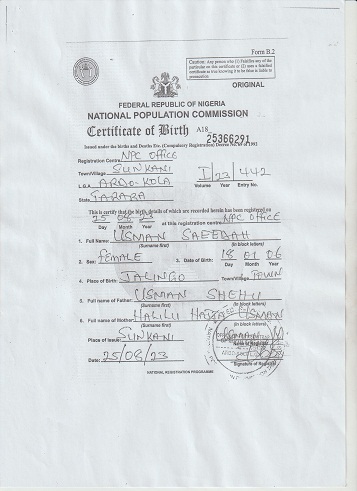 Form B.2
Caution: Any person who (1) Falsifies any of the
particular on this certificate or (2) uses a falsified
certificate as true knowing it to be false is liable to
prosecution
ORIGINAL
FEDERAL REPUBLIC OF NIGERIA
NATIONAL POPULATION COMMISSION
Certificate of Birth A18 25366291
Issued under the births and Deaths Etc. (Compulsory Registration) Decree No. 69 of 1992
Registration Centre NPC OFFICE
Town/Village SUNKANI I 23 442
L.G.A ARDO-KOLA Volume Year Entry No.
State TARABA
This is certify that the birth, details of which are recorded herein has been registered on
25 08 at this registration centre NPC OFFICE
Day Month Year
1. Full Name: USMAN SAEEDAH
(Surname first) (in block letters)
2. Sex: FEMALE 3. Date of Birth: 18 01 06
Day Month Year
4. Place of Birth: JALINGO Town/Village
5. Full name of Father: USMAN SHEHU
(Surname first) (in block letters)
6. Full name of Mother: HALILU USMAN
(Surname first) (in block letters)
Place of Issue: SUNKANI
Name of Registrar
Date: 25/08/23
Signature of Registrar
NATIONAL REGISTRATION PROGRAMME